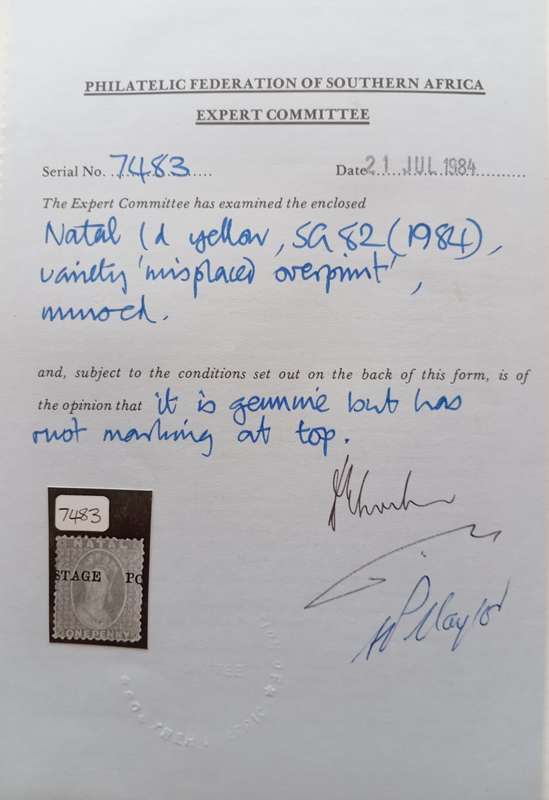 PHILATELIC FEDERATION OF SOUTHERN AFRICA
EXPERT COMMITTEE
Serial No. 7483 Date 21 JUL 1984
The Expert Committee has examined the enclosed
Natal 1d yellow, SG 82 (1984),
variety 'misplaced overprint',
unused.
and, subject to the conditions set out on the back of this form, is of
the opinion that it is genuine but has
rust marking at top.
7483
NATAL
STAGE PO
ONE PENNY